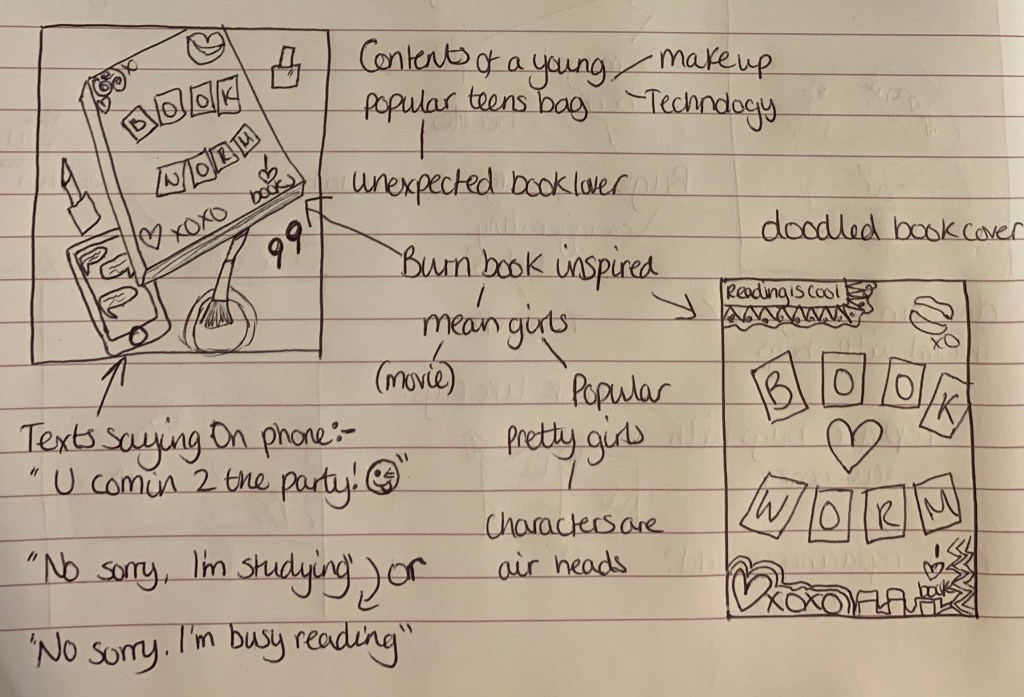 xo
BOOK
WORM
I ♡ books
♡ xoxo
99
Contents of a young
popular teens bag
makeup
Technology
unexpected book lover
Burn book inspired
mean girls
(movie)
Popular
pretty girls
characters are
air heads
Texts saying On phone:-
"U comin 2 the party! 😜"
"No sorry, I'm studying" or
"No sorry, I'm busy reading"
doodled book cover
Reading is Cool
xo
BOOK
♡
WORM
I ♡ books
♡ xoxo